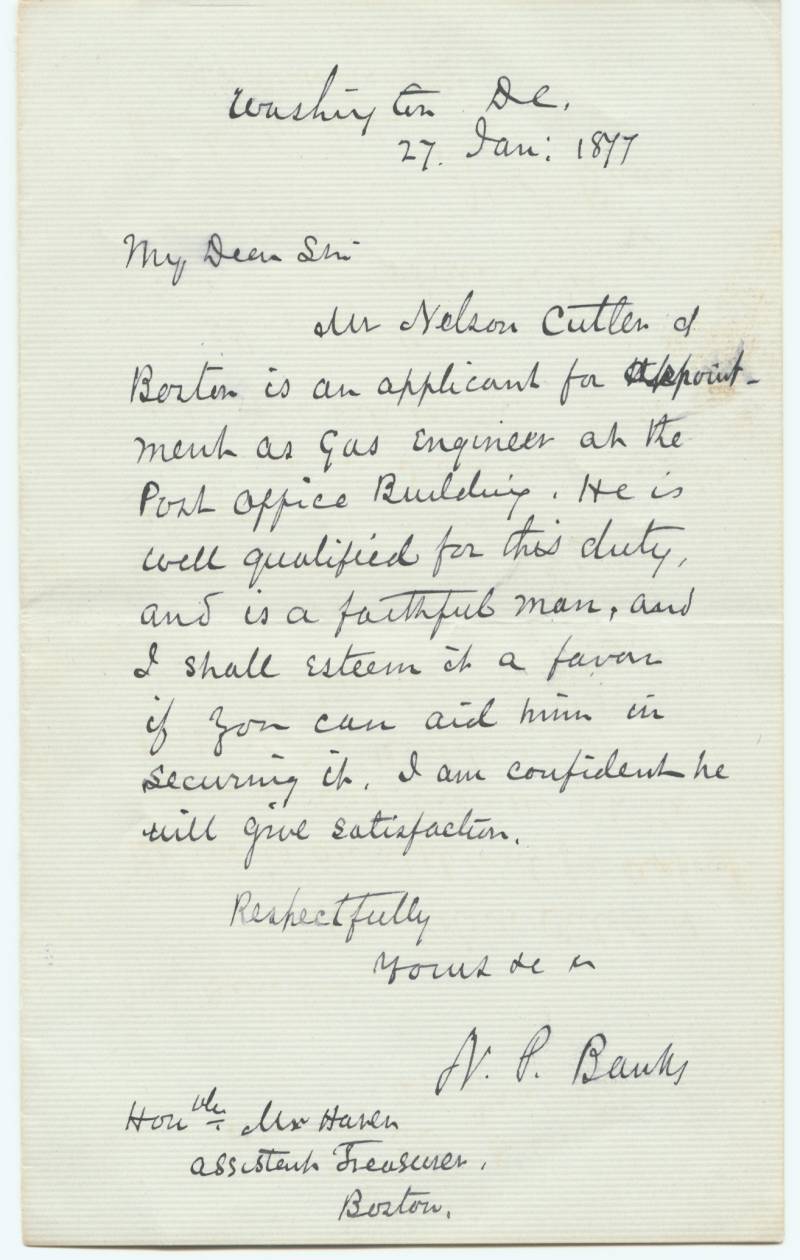 Washington D.C.
27. Jan: 1877
My Dear Sir
Mr Nelson Cutler of
Boston is an applicant for appoint-
ment as Gas Engineer at the
Post Office Building. He is
well qualified for this duty,
and is a faithful man, and
I shall esteem it a favor
if you can aid him in
securing it. I am confident he
will give satisfaction.
Respectfully
Yours &c &c
N. P. Banks
Honble Mr Haven
Assistant Treasurer.
Boston.